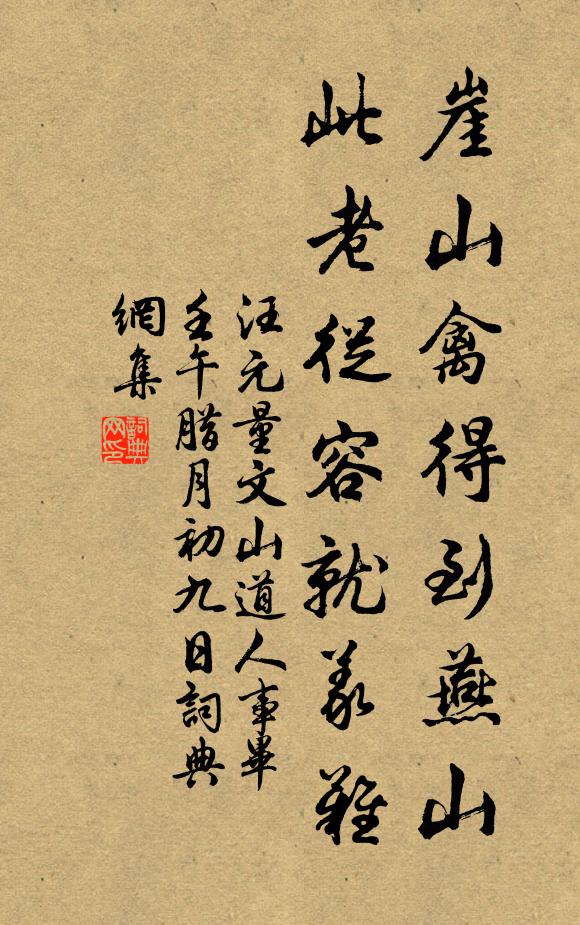 崖山禽得到燕山
此老從容就義難
汪元量文山道人事畢
壬午腊月初九日詞典
網集
詞典
网印